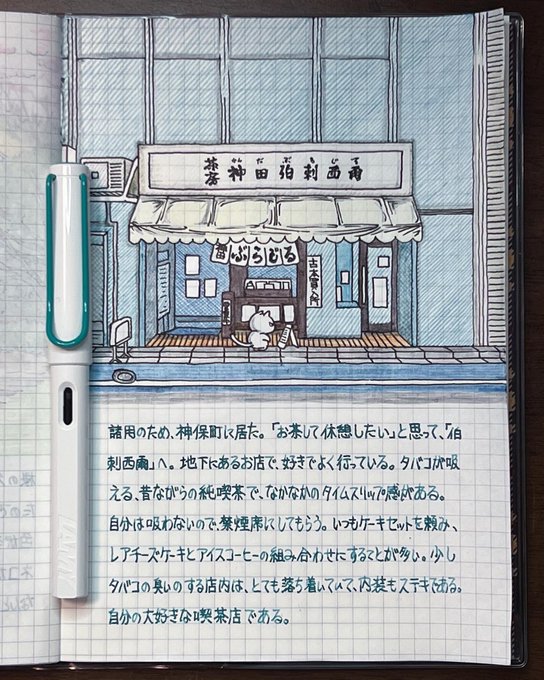 茶房 神田伯剌西爾
かんだぶらじる
ぶらじる
古本買入所
諸用のため、神保町に居た。「お茶して休憩したい」と思って、「伯
剌西爾」へ。地下にあるお店で、好きでよく行っている。タバコが吸
える、昔ながらの純喫茶で、なかなかのタイムスリップ感がある。
自分は吸わないので、禁煙席にしてもらう。いつもケーキセットを頼み、
レアチーズケーキとアイスコーヒーの組み合わせにすることが多い。少し
タバコの臭いのする店内は、とても落ち着いていて、内装もステキである。
自分の大好きな喫茶店である。
LAMY